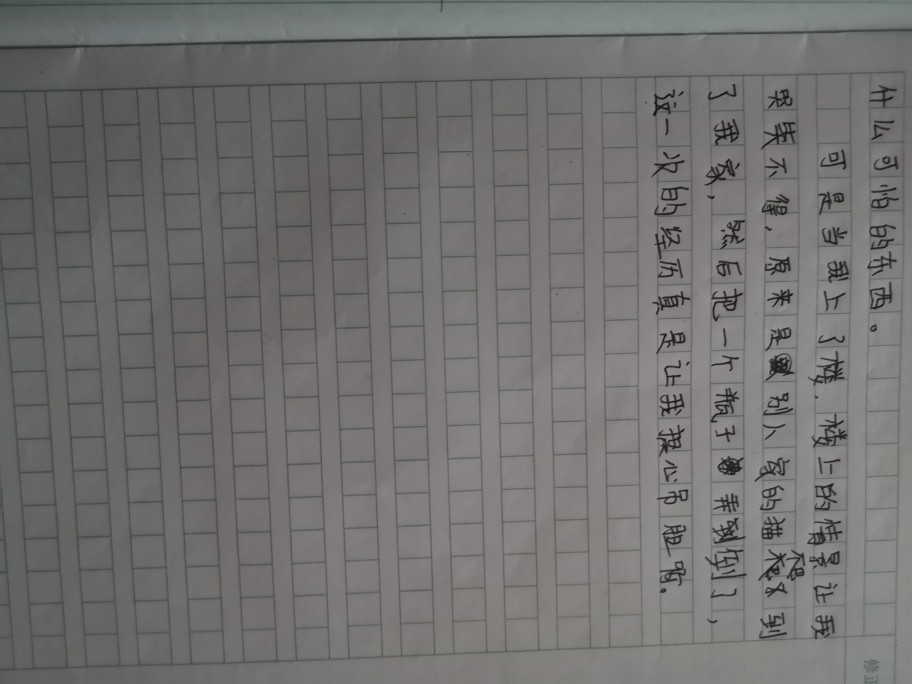 什么可怕的东西。
可是当我上了楼，楼上的情景让我
哭笑不得，原来是别人家的猫爬到
了我家，然后把一个瓶子弄倒了，
这一次的经历真是让我提心吊胆啊。
修正